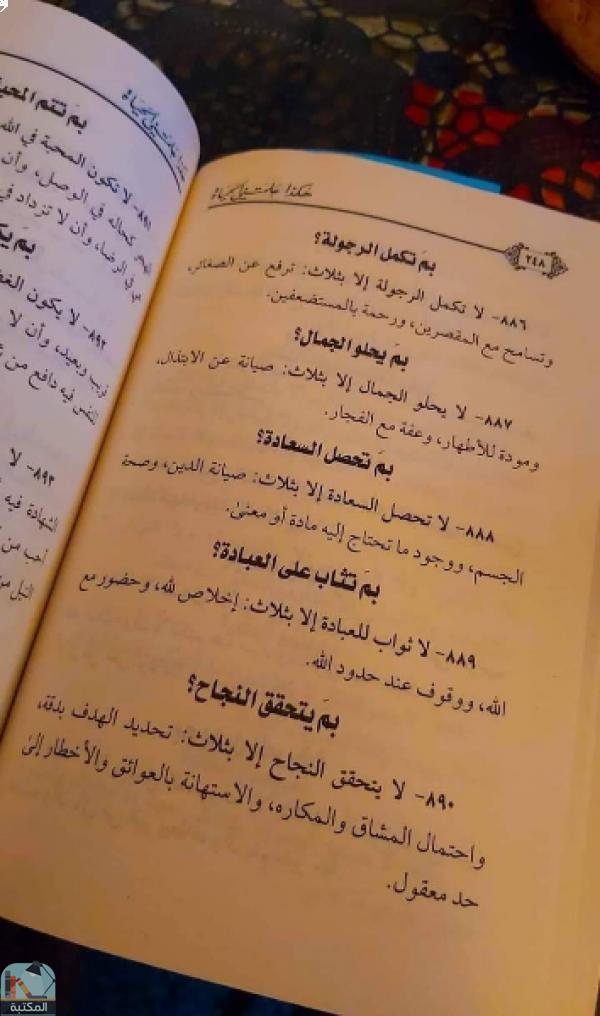 هكذا علمتني الحياة
٢٤٨
بمَ تكمل الرجولة؟
٨٨٦- لا تكمل الرجولة إلا بثلاث: ترفع عن الصغائر،
وتسامح مع المقصرين، ورحمة بالمستضعفين.
بمَ يحلو الجمال؟
٨٨٧- لا يحلو الجمال إلا بثلاث: صيانة عن الابتذال،
ومودة للأطهار، وعفة مع الفجار.
بمَ تحصل السعادة؟
٨٨٨- لا تحصل السعادة إلا بثلاث: صيانة الدين، وصحة
الجسم، ووجود ما تحتاج إليه مادة أو معنىً.
بمَ تثاب على العبادة؟
٨٨٩- لا ثواب للعبادة إلا بثلاث: إخلاص لله، وحضور مع
الله، ووقوف عند حدود الله.
بمَ يتحقق النجاح؟
٨٩٠- لا يتحقق النجاح إلا بثلاث: تحديد الهدف بدقة،
واحتمال المشاق والمكاره، والاستهانة بالعوائق والأخطار إلىٰ
حد معقول.
هكذا علمتني الحياة
بمَ تتم
٨٩١- لا تكون المحبة في الله
كحاله في الوصل، وأن
في الرضا، وأن لا تزداد في
بمَ
٨٩٢- لا يكون
قريب وبعيد، وأن لا
فيه دافع من
٨٩٣- لا
الشهادة فيه
أحب من
النبل
المكتبة